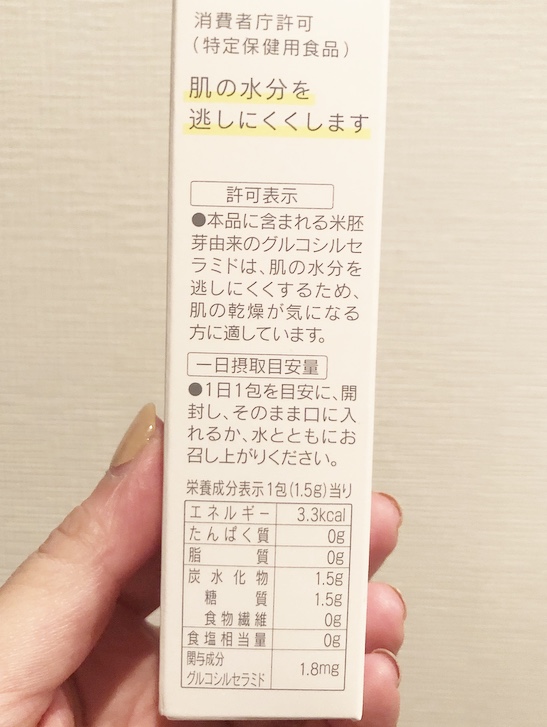 消費者庁許可
(特定保健用食品)
肌の水分を
逃しにくくします
許可表示
●本品に含まれる米胚
芽由来のグルコシルセ
ラミドは、肌の水分を
逃しにくくするため、
肌の乾燥が気になる
方に適しています。
一日摂取目安量
●1日1包を目安に、開
封し、そのまま口に入
れるか、水とともにお
召し上がりください。
栄養成分表示1包(1.5g)当り
エネルギー 3.3kcal
たんぱく質 0g
脂質 0g
炭水化物 1.5g
糖質 1.5g
食物繊維 0g
食塩相当量 0g
関与成分
グルコシルセラミド 1.8mg